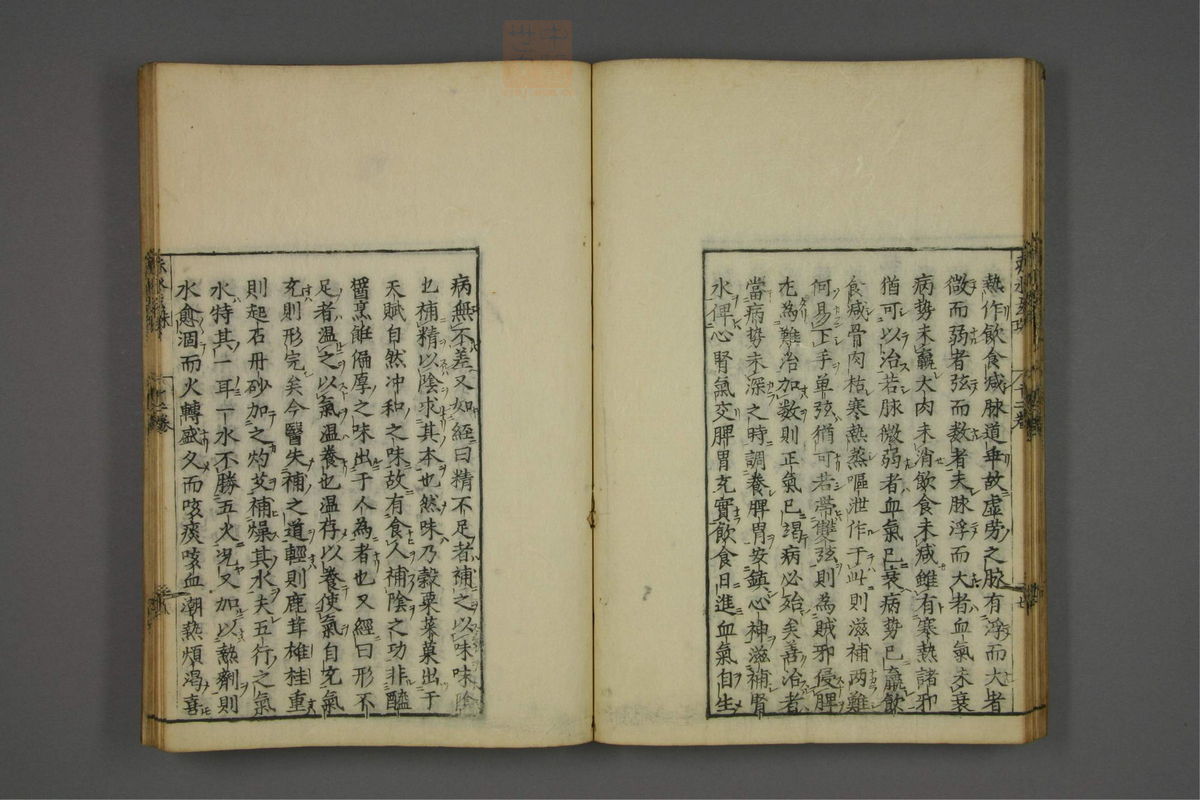 熱作飲食減脉道車故虛劳之脉有浮而大者
微而弱者弦而数者夫脉浮而大者血氣未衰
病势未羸大肉未消飲食未减雖有寒熱諸邪
猶可以治若脉微弱者血氣已衰病势已羸飲
食减骨肉枯寒熱蒸嘔泄作于此則滋補两難
何易下手单弦猶可若帶雙弦則為賊邪侵脾
尤為難治加数則正氣已竭病必殆矣善治者
當病势未深之時調養脾胃安鎮心神滋補腎
水俾心腎氣交脾胃充實飲食日進血氣自生
病無不差又如經曰精不足者補之以味味陰
也補精以陰求其本也然味乃穀粟菜菓出于
天賦自然冲和之味故有食人補陰之功非醯
醬烹飪偏厚之味出于人為者也又經曰形不
足者温之以氣温養也温存以養使氣自充氣
充則形完矣今醫失補之道輕則鹿茸桂重
則起石丹砂加之灼艾補燥其水夫五行之氣
水特其一耳一水不勝五火况又加以熱劑則
水愈涸而火轉盛久而咳痰咳血潮熱煩渴喜